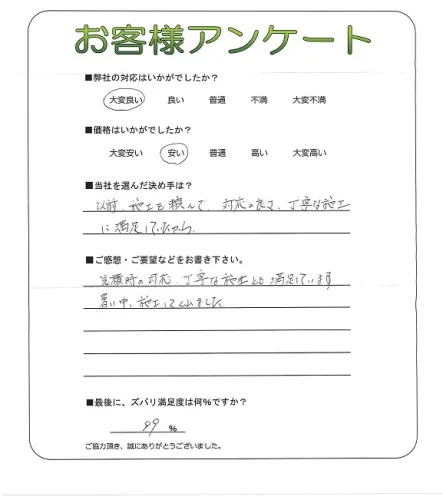 お客様アンケート
■弊社の対応はいかがでしたか？
大変良い 良い 普通 不満 大変不満
■価格はいかがでしたか？
大変安い 安い 普通 高い 大変高い
■当社を選んだ決め手は？
以前、施工を頼んで、対応の良さ、丁寧な施工
に満足していたから
■ご感想・ご要望などをお書き下さい。
見積時の対応、丁寧な施工とも満足しています
暑い中、施工してくれました
■最後に、ズバリ満足度は何%ですか？
99 %
ご協力頂き、誠にありがとうございました。